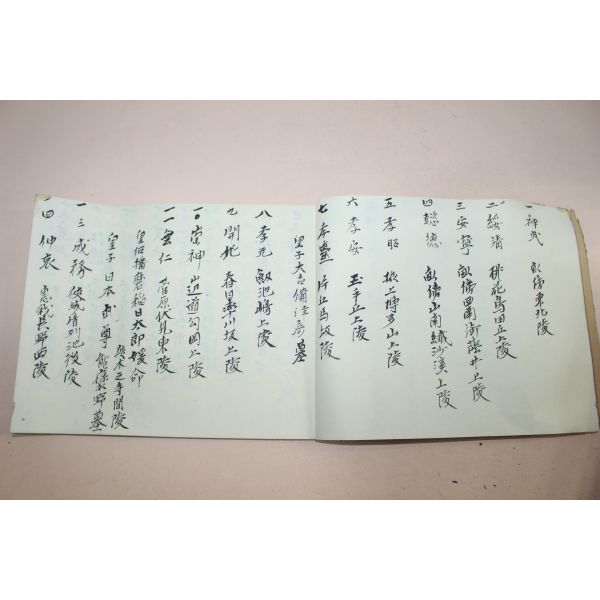 一 神武 畝傍東北陵
二 綏靖 桃花鳥田丘上陵
三 安寧 畝傍西南御蔭井上陵
四 懿德 畝傍山南纎沙溪上陵
五 孝昭 掖上博多山上陵
六 孝安 玉手丘上陵
七 孝靈 片丘馬坂陵
皇子大吉備津彦墓
八 孝元 劔池嶋上陵
九 開化 春日率川坂上陵
一〇 崇神 山辺道勾岡上陵
一一 垂仁 菅原伏見東陵
皇后播磨稲日太郎媛命
皇子 日本武尊 能褒野墓
一三 成務 狭城盾列池後陵
一四 仲哀 恵我長野西陵